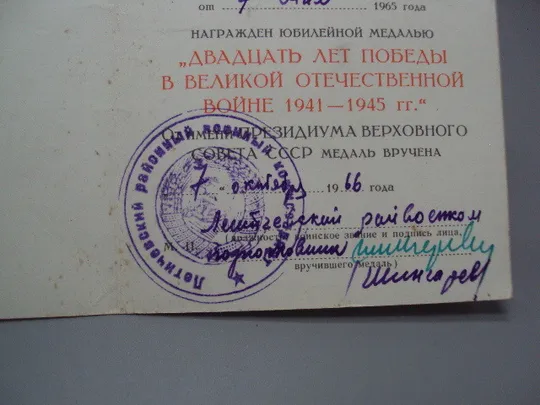 от 7 мая 1965 года
НАГРАЖДЕН ЮБИЛЕЙНОЙ МЕДАЛЬЮ
„ДВАДЦАТЬ ЛЕТ ПОБЕДЫ
В ВЕЛИКОЙ ОТЕЧЕСТВЕННОЙ
ВОЙНЕ 1941—1945 гг.“
От имени ПРЕЗИДИУМА ВЕРХОВНОГО
СОВЕТА СССР МЕДАЛЬ ВРУЧЕНА
7 октября 1966 года
Летичевский райвоенком
(должность, воинское звание и подпись лица,
М. П. подполковник
вручившего медаль)
Шингарев
Летичевский районный военный комиссариат